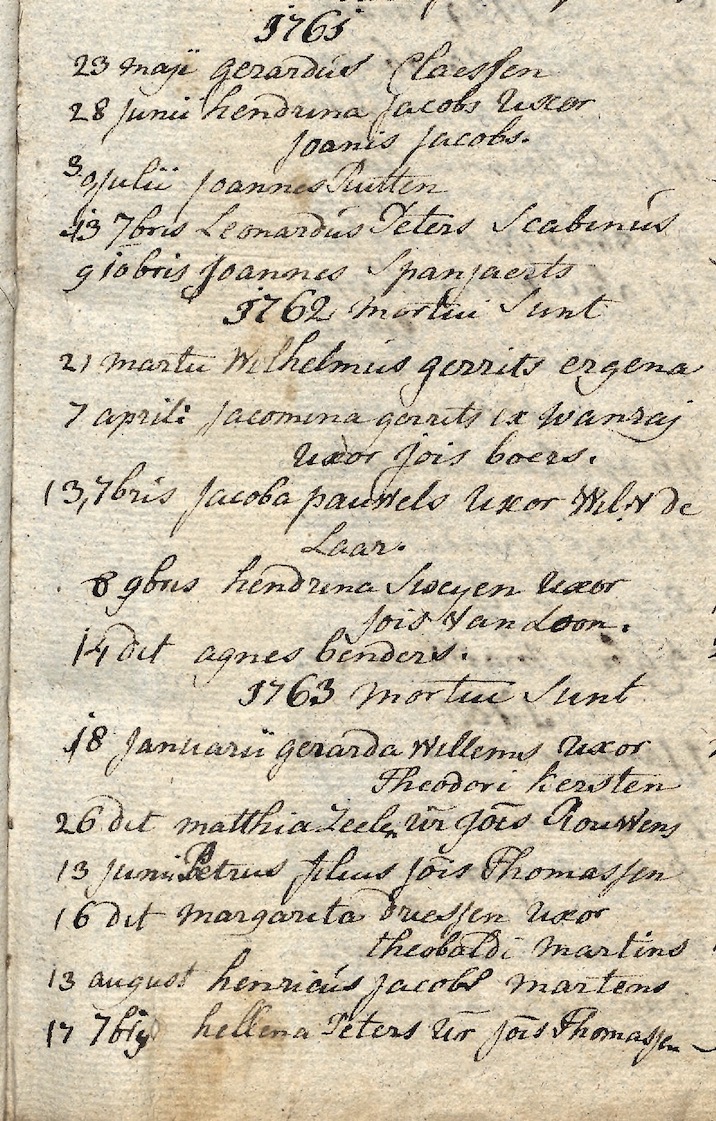 1761
23 maji gerardus Claessen
28 junii hendrina jacobs uxor
joanis jacobs.
30 julii joannes Rutten
13 7bris Leonardus Peters Scabinus
9 10bris joannes Spanjaerts
1762 mortui sunt
21 martii Wilhelmus gerrits ergena
7 aprili jacomina gerrits ex wanraj
uxor jois boers.
13,7bris jacoba pauwels uxor Wil. V de
Laar.
8 9bris hendrina Sweyen uxor
jois Van Loon.
14 dit agnes benders.
1763 mortui sunt
18 januarii gerarda Willems uxor
Theodori kersten
26 dit matthia Zeelen ūr jōis Rouwens
13 junii Petrus filius jōis Thomassen
16 dit margarita driessen uxor
theobaldi martins
13 august henricus jacobs martens
17 7bris hellena Peters ūr jōis Thomassen